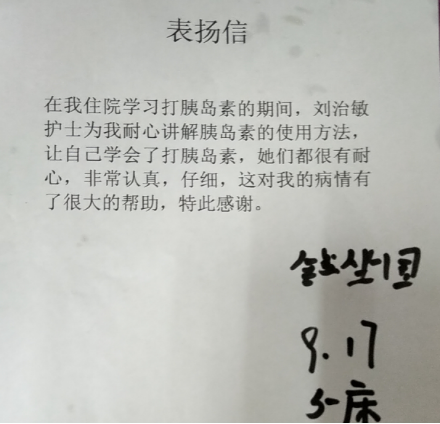 表扬信
在我住院学习打胰岛素的期间，刘治敏
护士为我耐心讲解胰岛素的使用方法，
让自己学会了打胰岛素，她们都很有耐
心，非常认真，仔细，这对我的病情有
了很大的帮助，特此感谢。
9.17
床